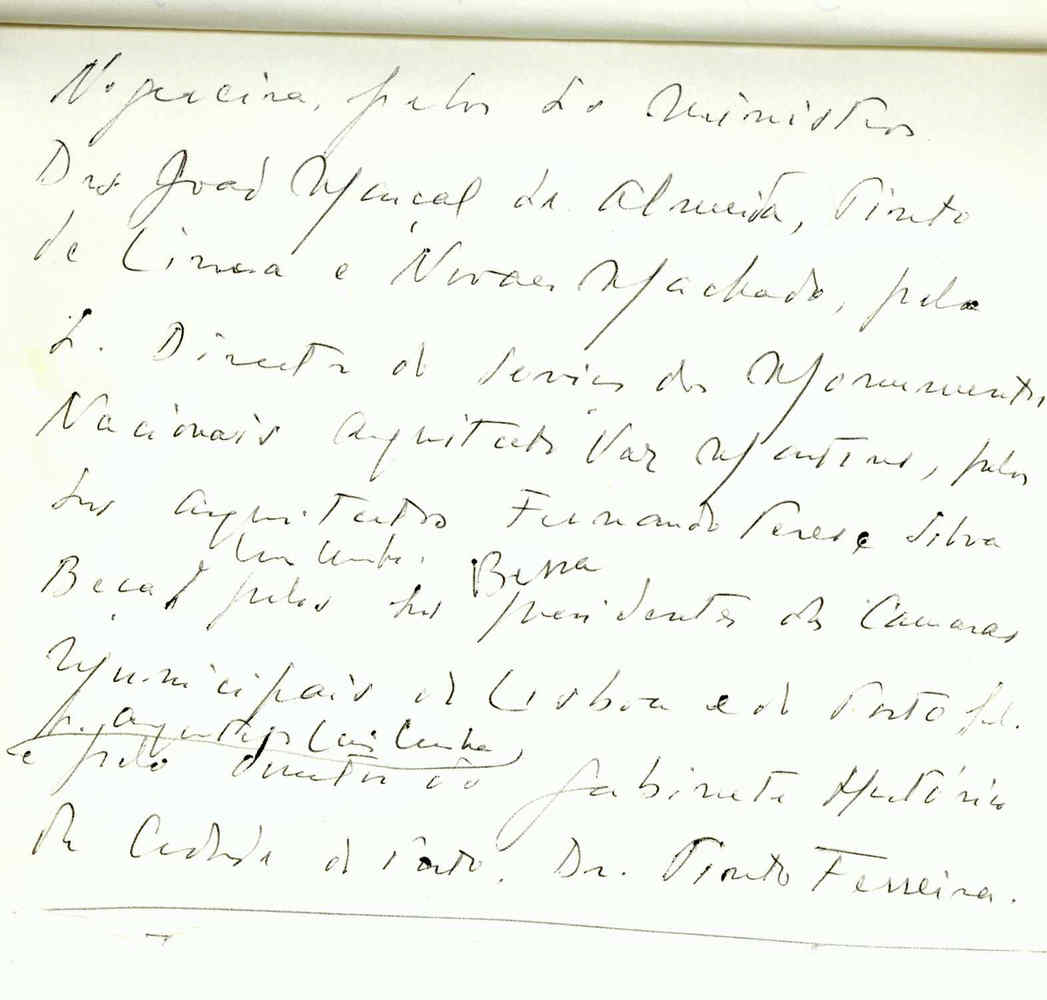 Nogueira, pelos Srs Ministros
Drs João Marçal de Almeida, Pinto
de Lima e Novaes Machado, pelo
Sr. Director de Serviços dos Monumentos
Nacionais arquitecto Vaz Martins, pelos
Srs arquitectos Fernando Peres e Silva
Luis Cunha. Bessa
Beça pelos Srs presidentes das Camaras
Municipais de Lisboa e do Porto
arquitecto Luis Cunha,
e pelo director do Gabinete Histórico
da Cidade do Porto, Dr. Pinto Ferreira.